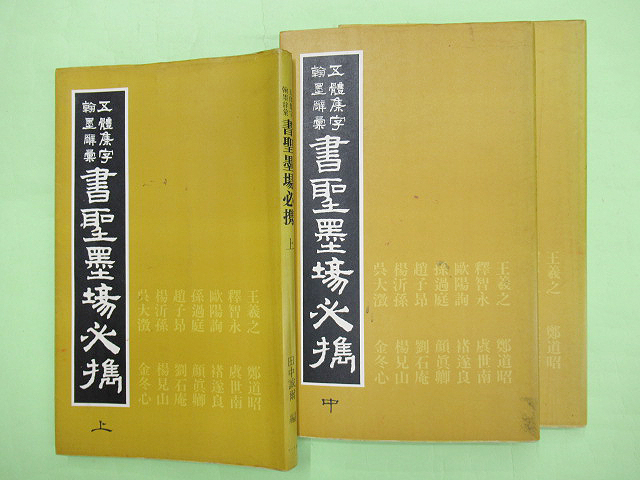 五體集字
翰墨辭彙
書聖墨場必携
王羲之 鄭道昭
釋智永 虞世南
歐陽詢 褚遂良
孫過庭 顏眞卿
趙子昂 劉石庵
楊沂孫 楊見山
吳大澂 金冬心
上
五體集字
翰墨辭彙
書聖墨場必携
上
田中
編
五體集字
翰墨辭彙
書聖墨場必携
王羲之 鄭道昭
釋智永 虞世南
歐陽詢 褚遂良
孫過庭 顏眞卿
趙子昂 劉石庵
楊沂孫 楊見山
吳大澂 金冬心
中
王羲之 鄭道昭